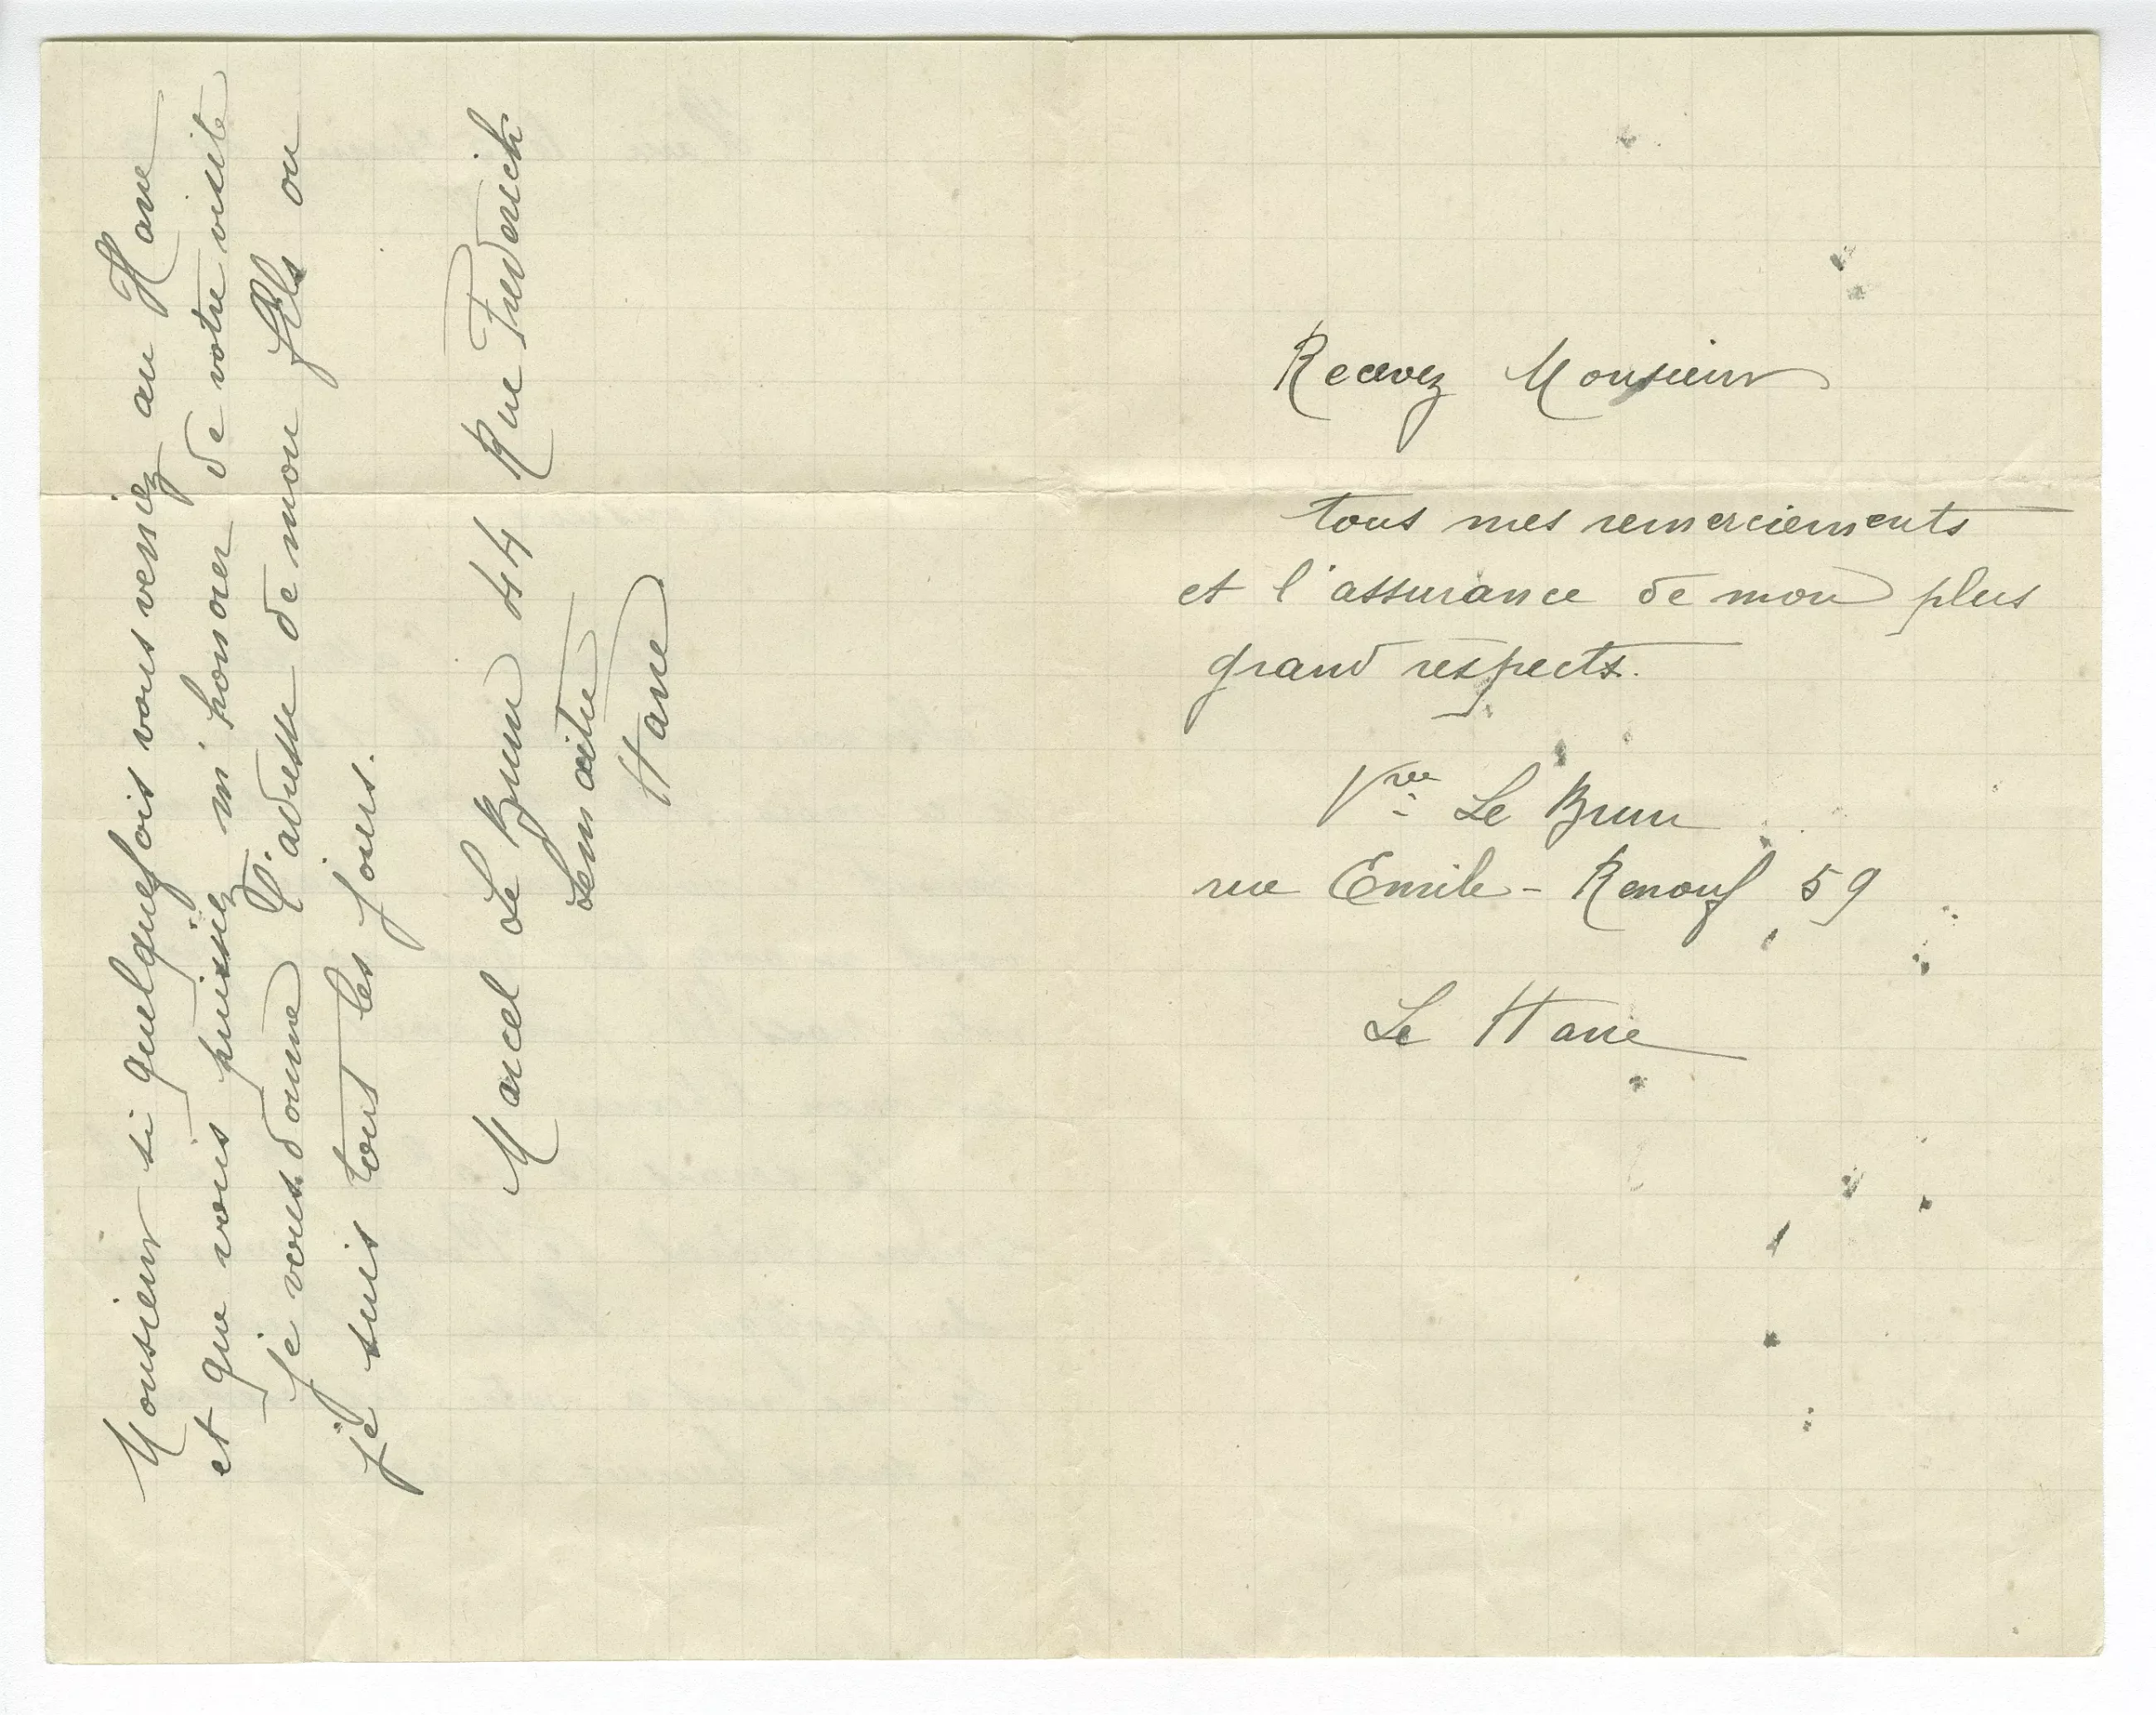 Monsieur si quelquefois vous veniez au Havre
et que vous puissiez m'honorer de votre visite
je vous donne l'adresse de mon fils ou
je suis tout les jours.
Marcel Le Brun 44 Rue Frederick
Lemaitre
Havre
Recevez Monsieur
tous mes remerciements
et l'assurance de mon plus
grand respects.
Vve Le Brun
rue Emile-Renouf 59
Le Havre